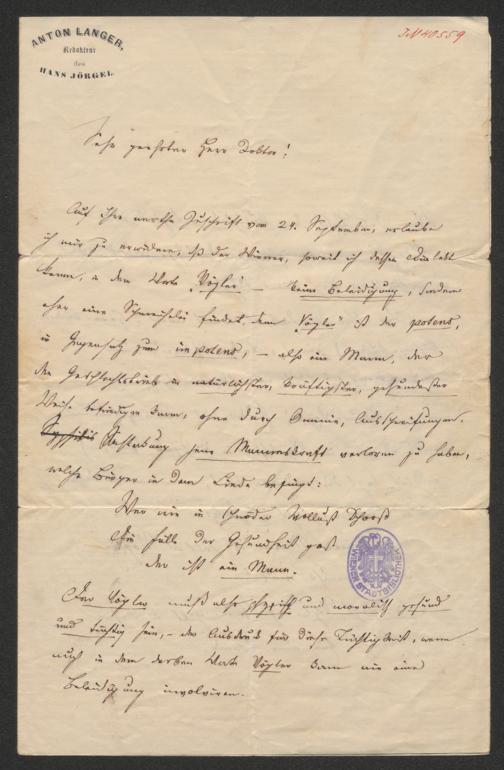 ANTON LANGER,
Redakteur
des
HANS JÖRGEL.
JN 40559
Sehr geehrter Herr Doktor!
Auf Ihre werthe Zuschrift vom 24. September, erlaube
ich mir zu erwidern, daß der Wiener, soweit ich dessen Dialekt
kenne, in dem Worte „Vögler“ – keine Beleidigung, sondern
eher eine Schmeichelei findet, denn „Vögler“ ist der potens,
im Gegensatz zum impotens, – also ein Mann, der
den Geschlechtstrieb in natürlichster, kräftigster, gesundester
Weise befriedigen kann, ohne durch Onanie, Ausschweifungen.
Syphilis Ansteckung jene Manneskraft verloren zu haben,
welche Bürger in dem Liede besingt:
Wer nie in schnöder Wollust Schooß
Die Fülle der Gesundheit goß
der ist ein Mann.
Der Vögler muß also physisch und moralisch gesund
und tüchtig sein, – der Ausdruck für diese Tüchtigkeit, wenn
auch in dem derben Worte Vögler kann nie eine
Beleidigung involviren.
WIENER STADTBIBLIOTHEK